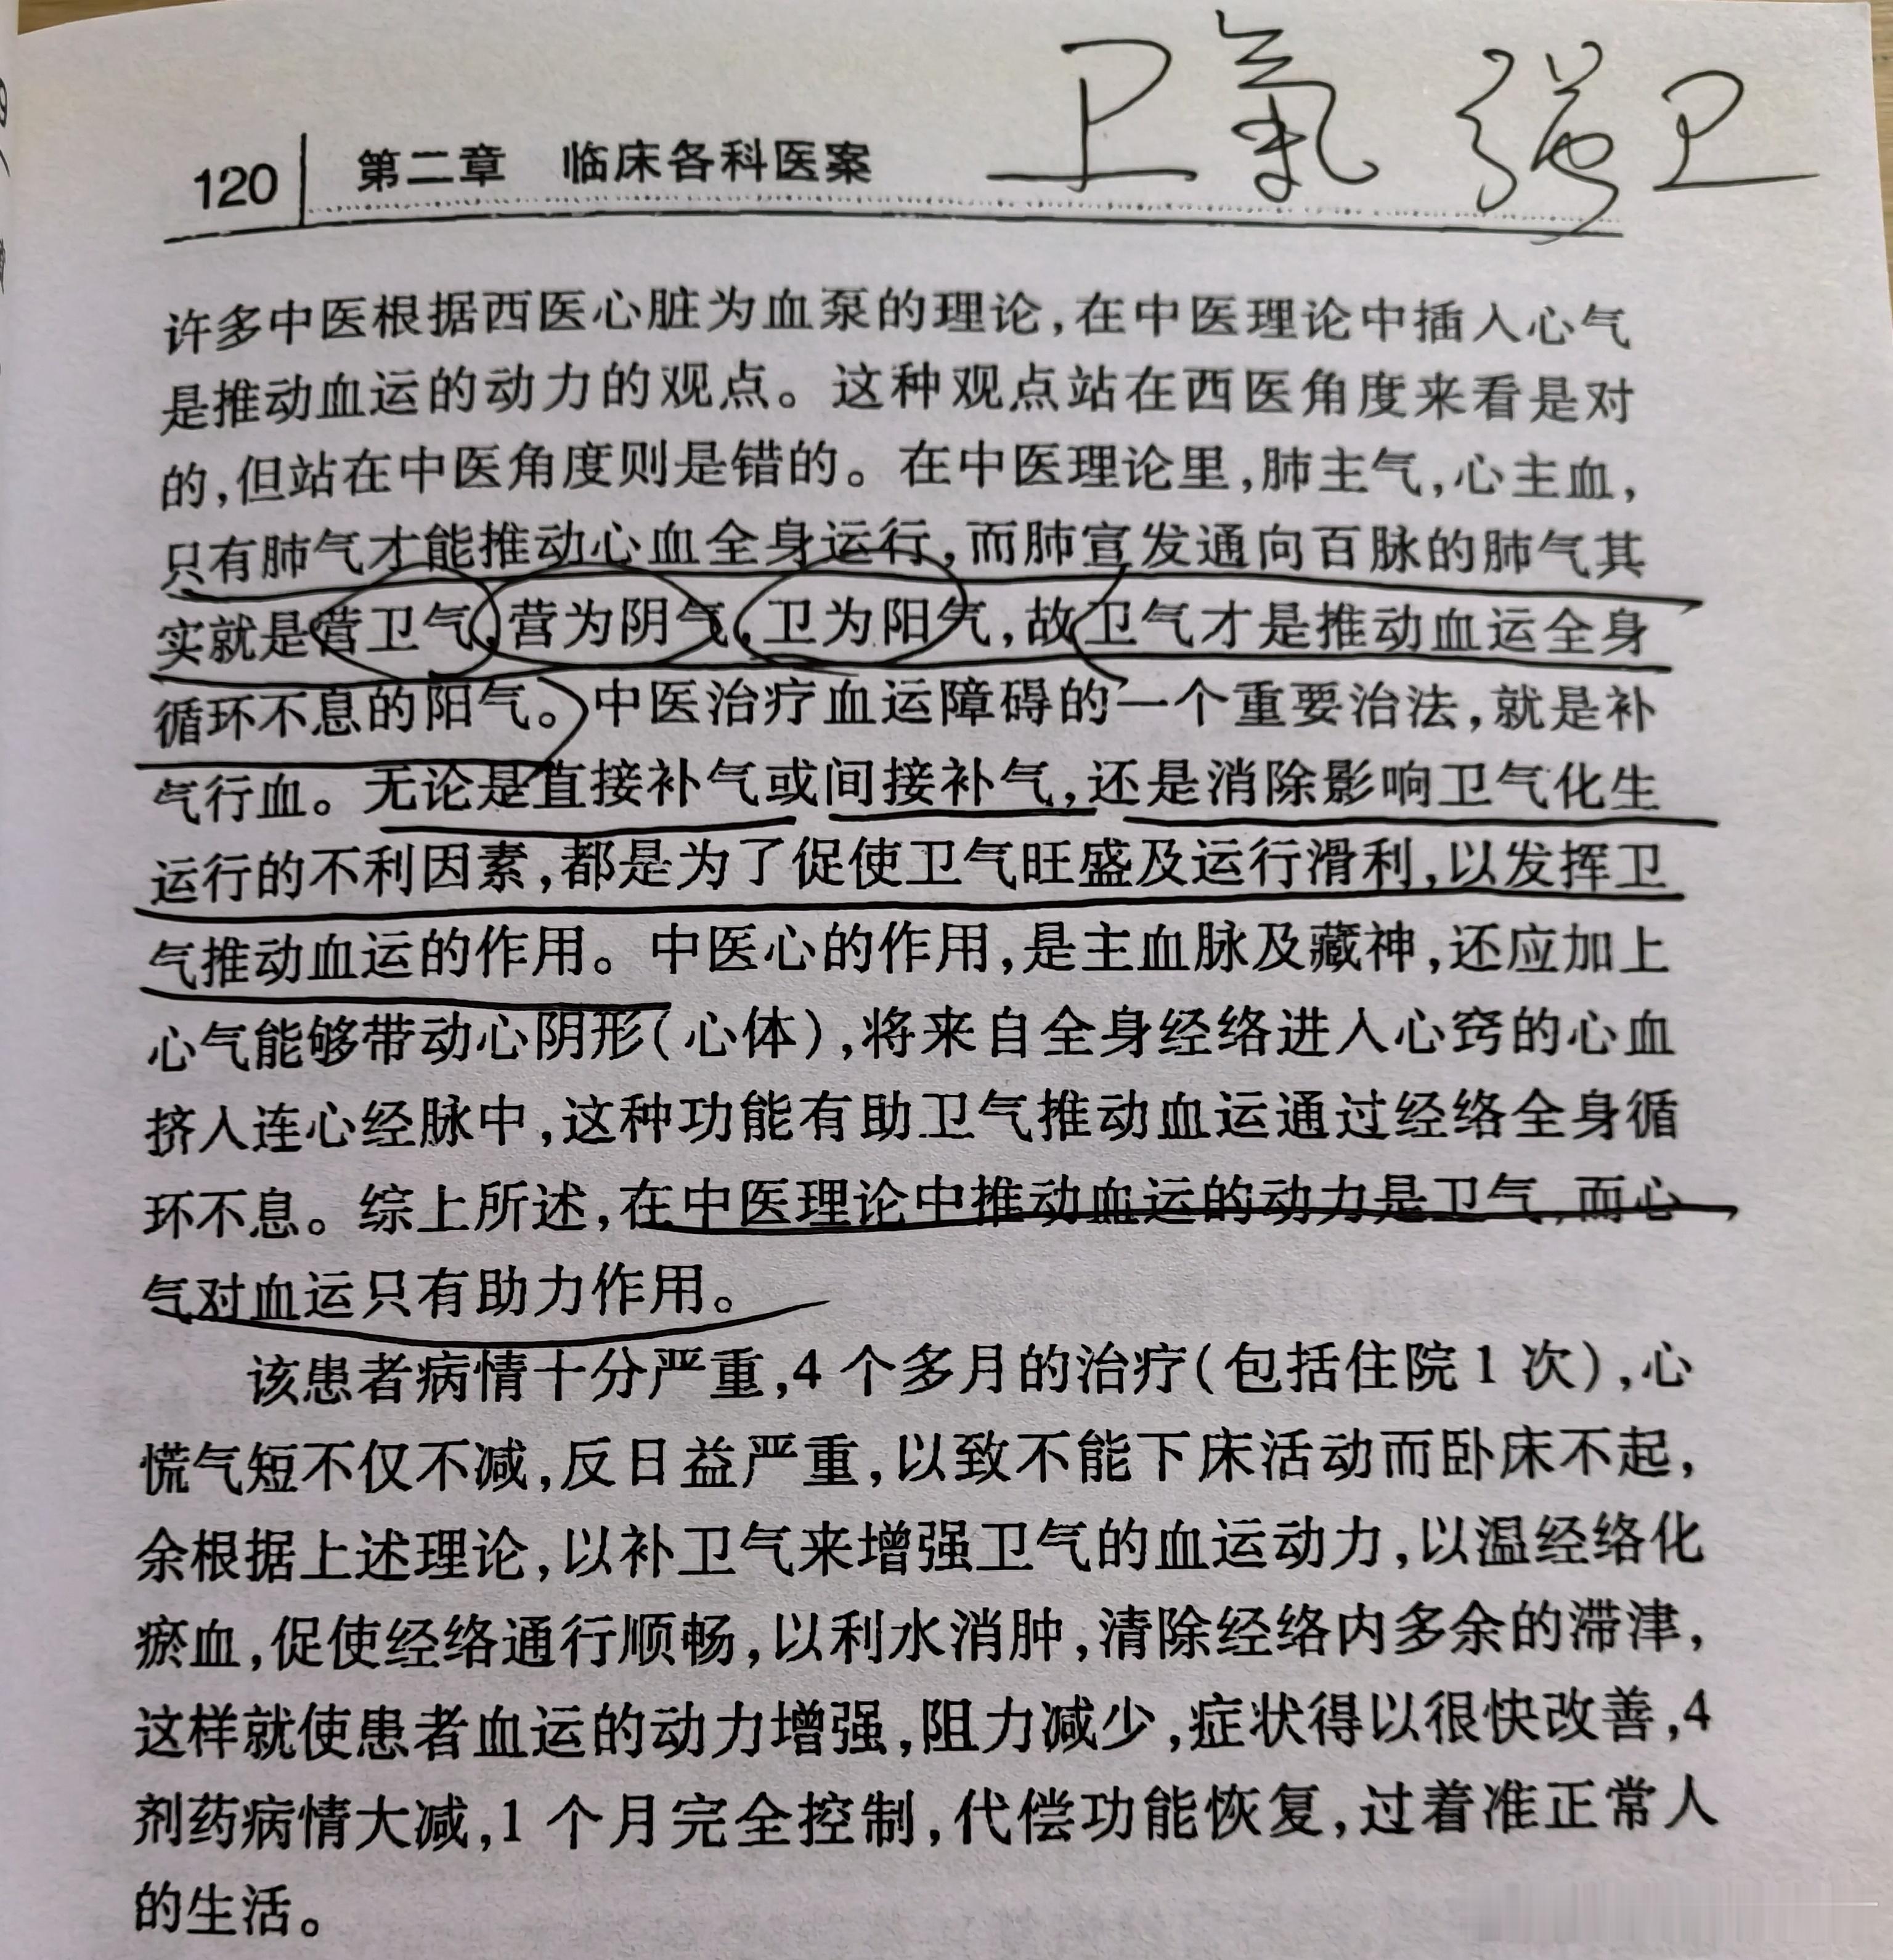 卫氣 强卫
120 第二章 临床各科医案
许多中医根据西医心脏为血泵的理论,在中医理论中插入心气
是推动血运的动力的观点。这种观点站在西医角度来看是对
的,但站在中医角度则是错的。在中医理论里,肺主气,心主血,
只有肺气才能推动心血全身运行,而肺宣发通向百脉的肺气其
实就是营卫气,营为阴气,卫为阳气,故卫气才是推动血运全身
循环不息的阳气。中医治疗血运障碍的一个重要治法,就是补
气行血。无论是直接补气或间接补气,还是消除影响卫气化生
运行的不利因素,都是为了促使卫气旺盛及运行滑利,以发挥卫
气推动血运的作用。中医心的作用,是主血脉及藏神,还应加上
心气能够带动心阴形(心体),将来自全身经络进入心窍的心血
挤入连心经脉中,这种功能有助卫气推动血运通过经络全身循
环不息。综上所述,在中医理论中推动血运的动力是卫气,而心
气对血运只有助力作用。
该患者病情十分严重,4个多月的治疗(包括住院1次),心
慌气短不仅不减,反日益严重,以致不能下床活动而卧床不起,
余根据上述理论,以补卫气来增强卫气的血运动力,以温经络化
瘀血,促使经络通行顺畅,以利水消肿,清除经络内多余的滞津,
这样就使患者血运的动力增强,阻力减少,症状得以很快改善,4
剂药病情大减,1个月完全控制,代偿功能恢复,过着准正常人
的生活。